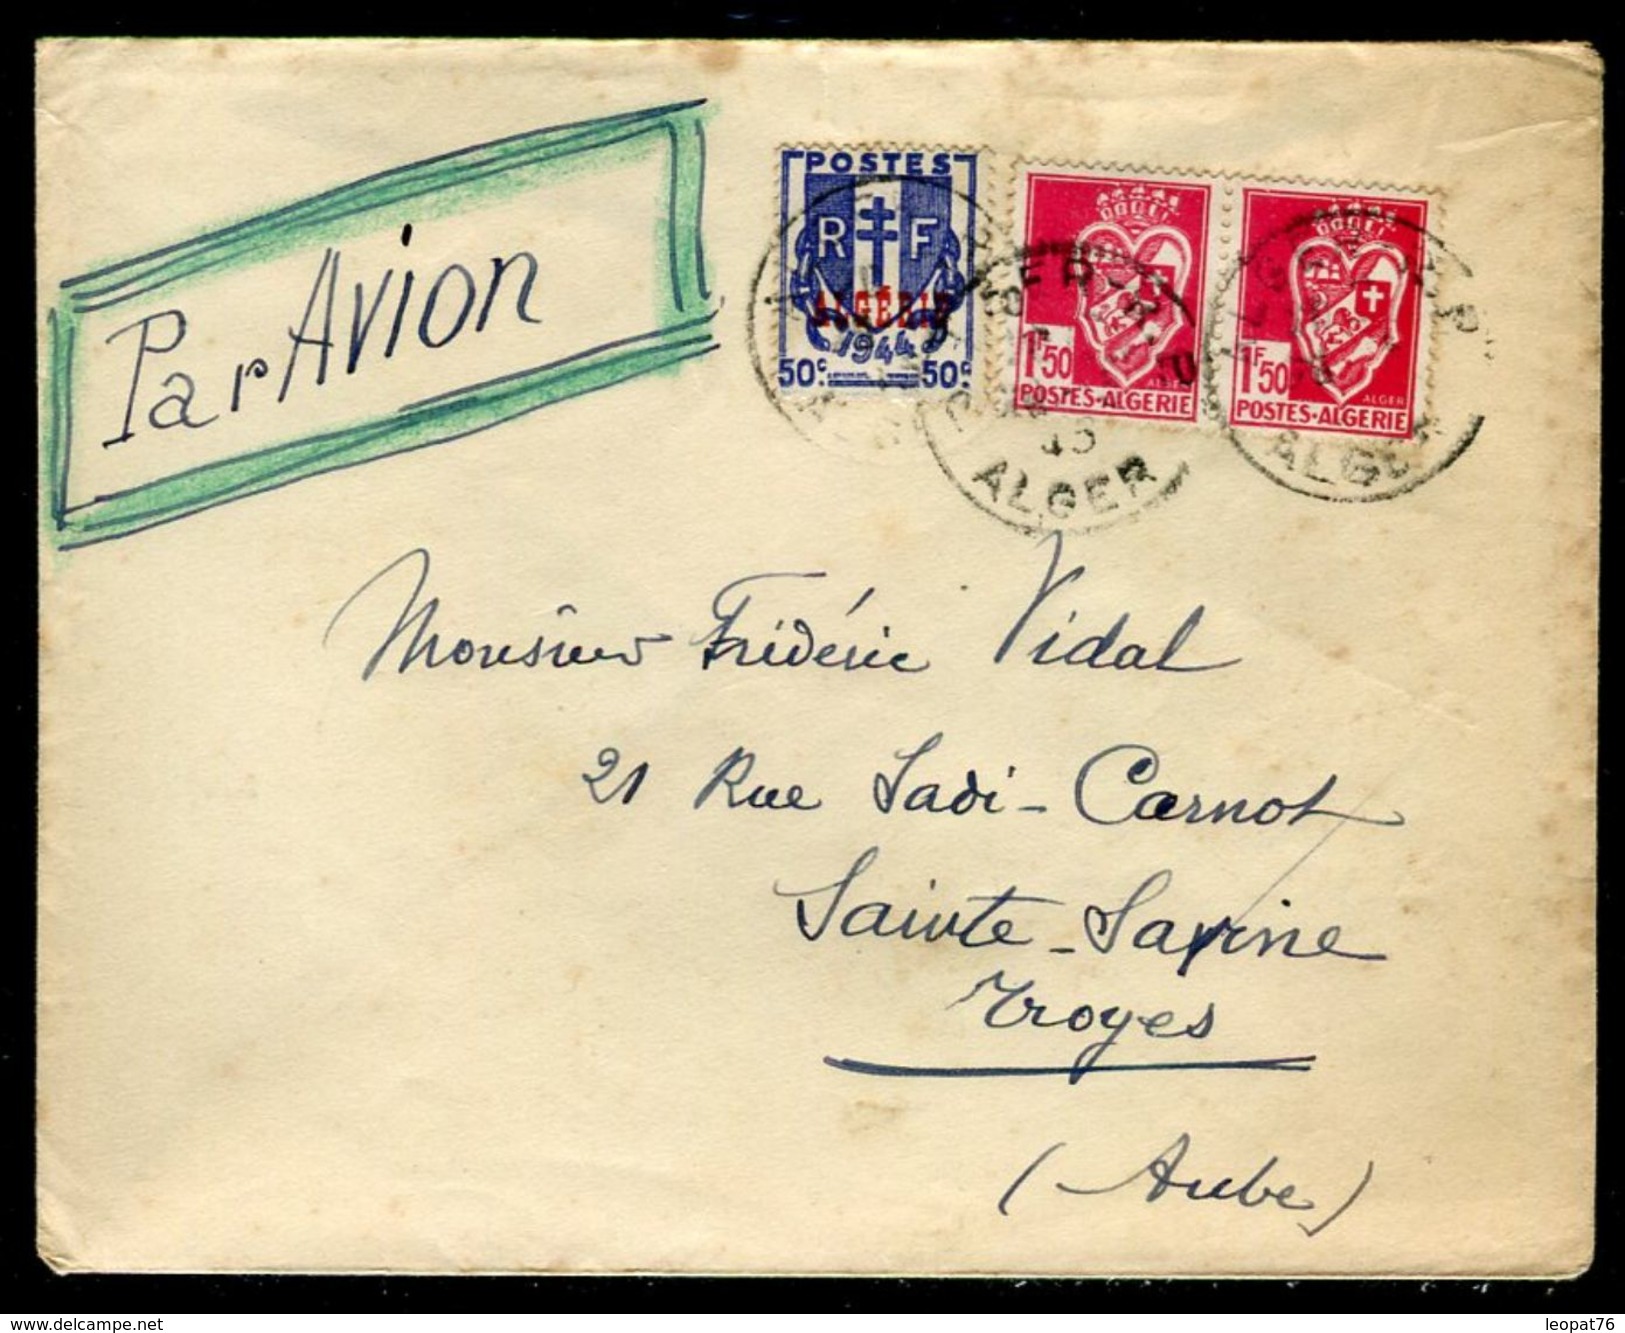 Par Avion
POSTES
R F
ALGÉRIE
1944
50c 50c
1F50
ALGER
POSTES-ALGERIE
1F50
ALGER
POSTES-ALGERIE
ALGER
ALGER
Monsieur Frédéric Vidal
21 Rue Sadi-Carnot
Sainte-Savine
Troyes
(Aube)
www.delcampe.net
leopat76